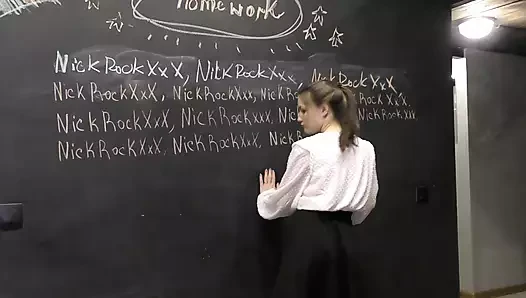 Homework
NickRockXxX, NickRockXxX, NickRockXxX,
NickRockXxX, NickRockXxX, NickRockXxX.
NickRockXxX, NickRockXxX, NickRockXxX
NickRockXxX, NickRockXxX,